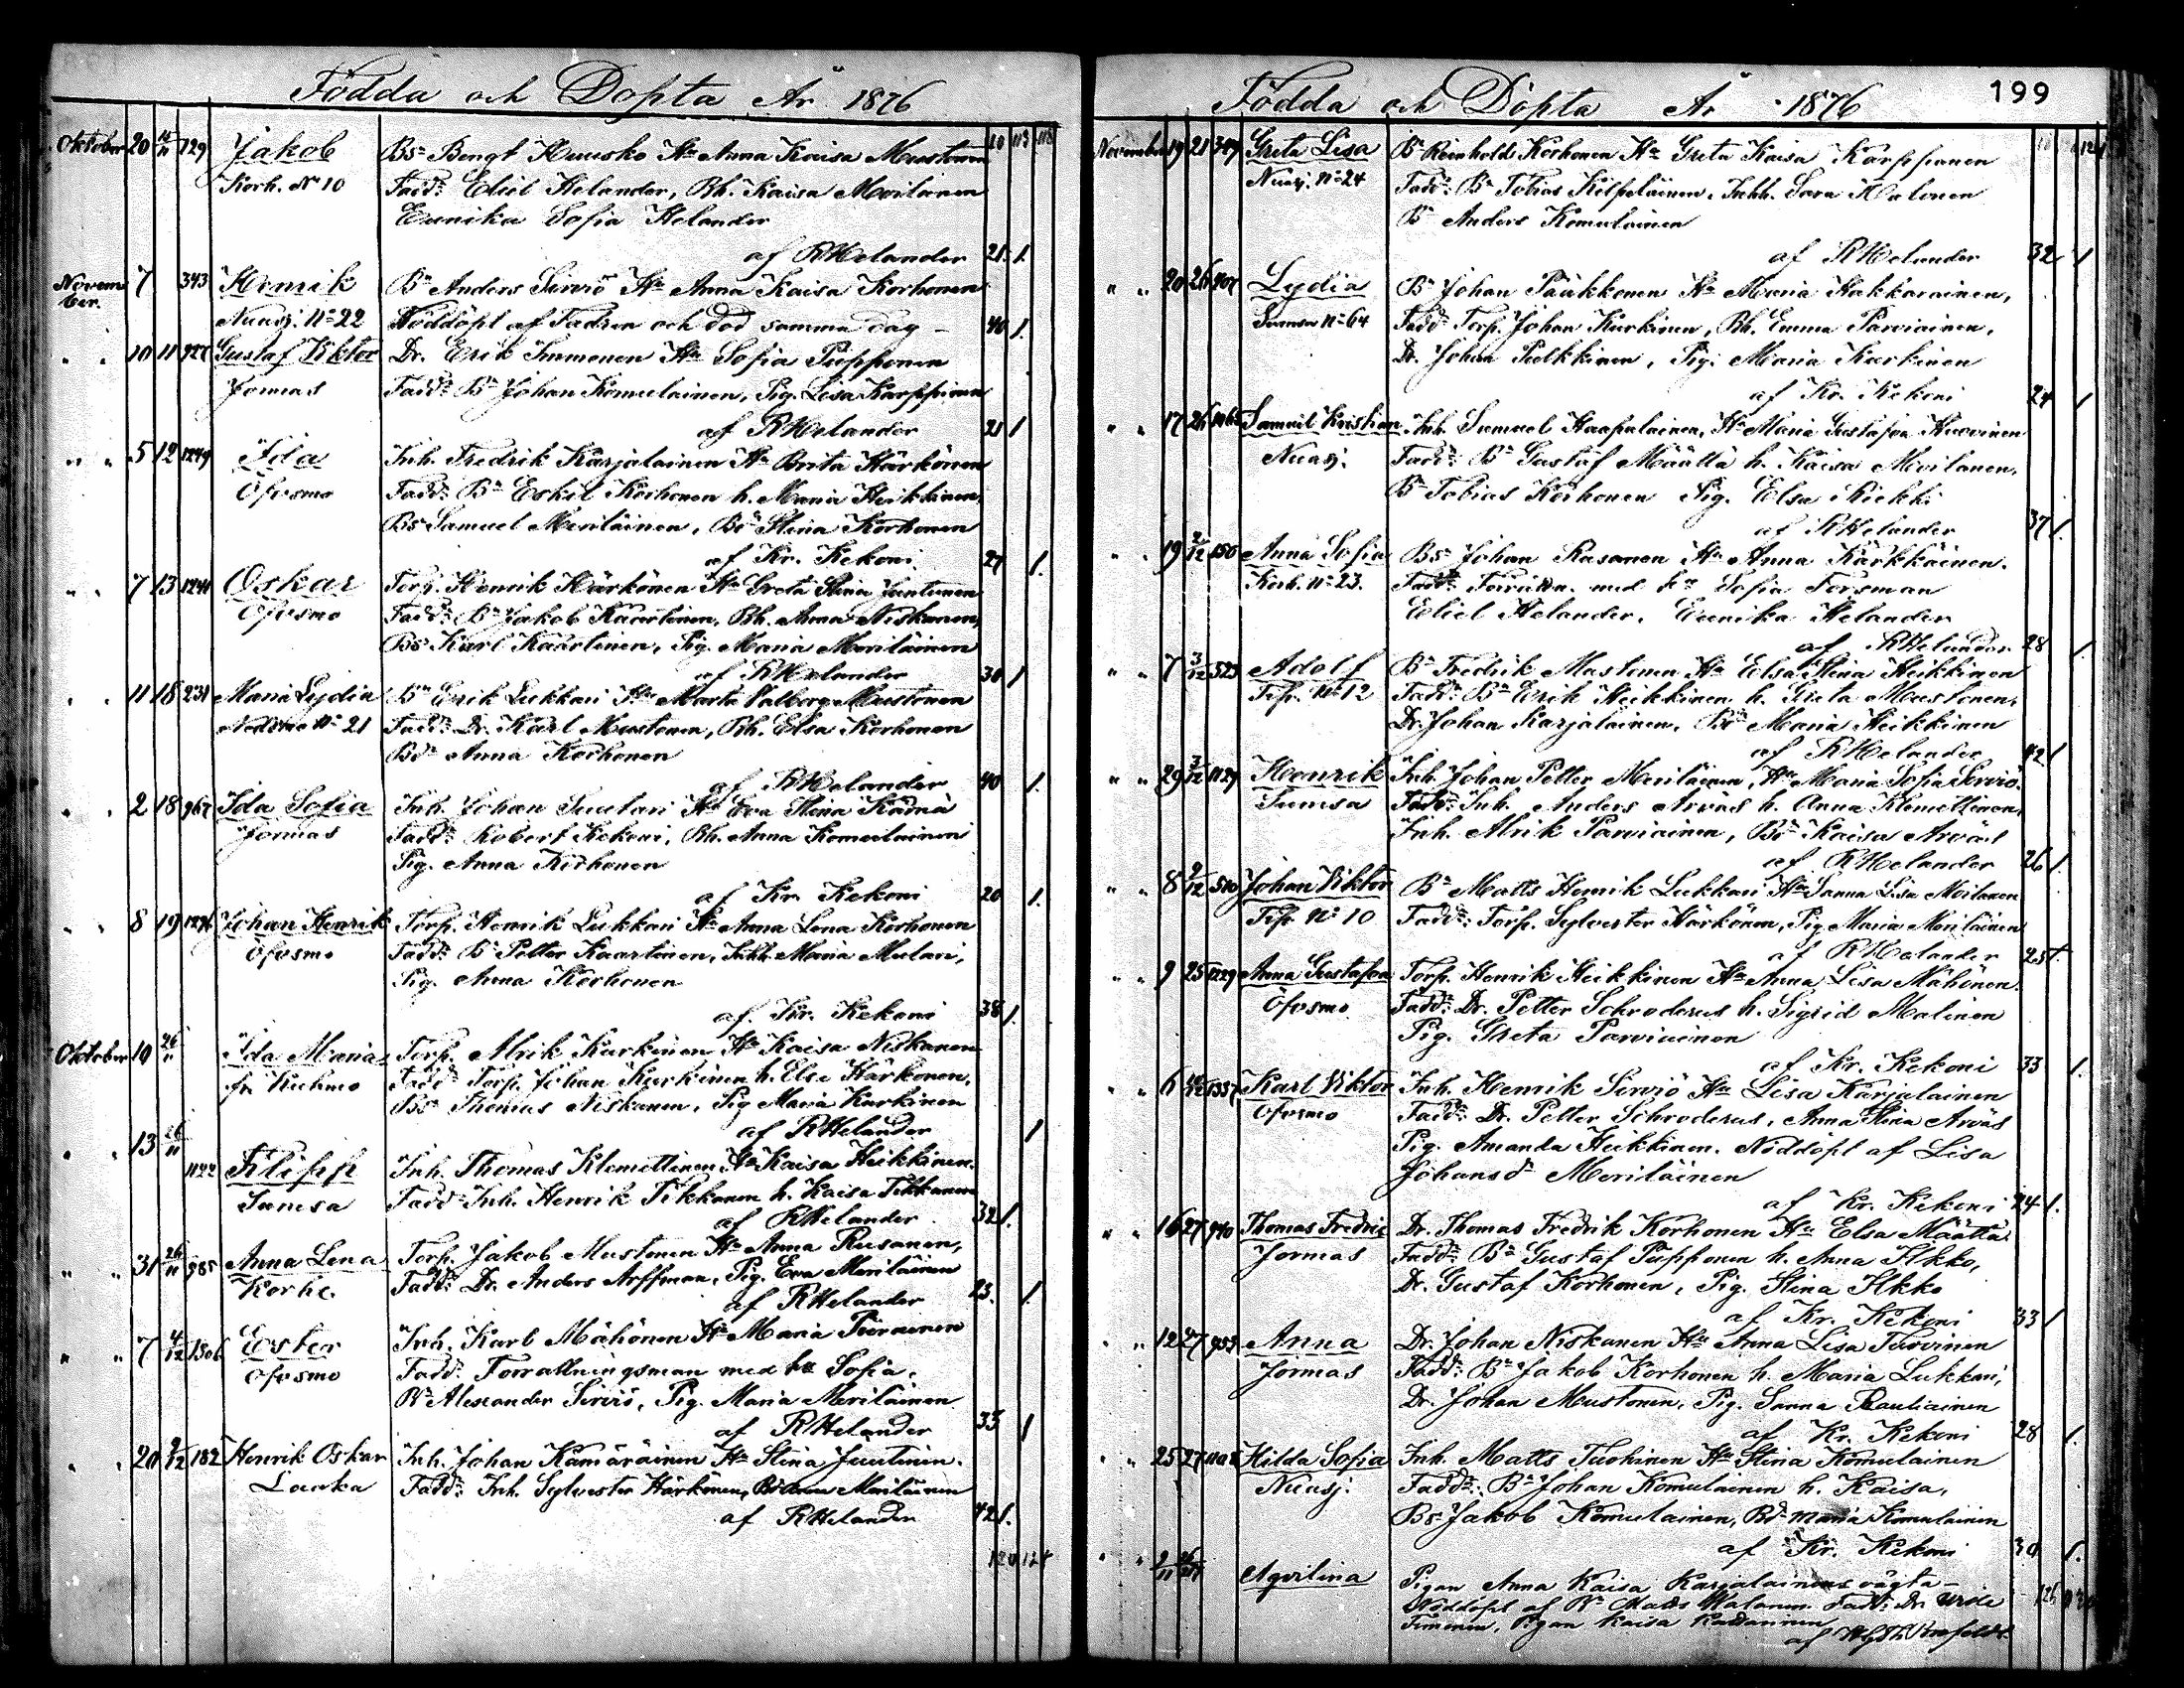 Födda och Döpta År 1876
Oktober 20 129 Jakob Bs. Bengt Huusko Hu Anna Kaisa Mustonen
Korh. No 10 Fadd: Eliel Helander, Bh. Kaisa Moilanen
Eunika Sofia Helander
af RHelander 21. 1.
November 7 343 Henrik Bn Anders Sirviö Hu Anna Kaisa Korhonen
Nuasj. No 22 Nöddöpt af Fadren och död samma dag - 40 1.
" " 10 11 927 Gustaf Viktor Dr. Erik Immonen Hu Sofia Piipponen
Jormas Fadd: Bn Johan Komulainen, Pig. Lisa Karppinen
af RHelander 21 1
" " 5 12 1249 Ida Inh. Fredrik Karjalainen Hu Brita Härkönen
Öfvsmo Fadd: Bn Eskil Korhonen h. Maria Heikkinen,
Bs Samuel Meriläinen, Bd Stina Korhonen
af Kr. Kekoni 27 1.
" " 7 13 1241 Oskar Torp. Henrik Härkönen Hu Greta Stina Juntunen
Öfvsmo Fadd: Bn Jakob Kaartinen, Bh. Anna Niskanen,
Bs Karl Kaartinen, Pig. Maria Meriläinen
af RHelander 30 1
" " 11 18 231 Maria Lydia Bn Erik Lukkari Hu Marta Valborg Mustonen
No 21 Fadd: Dr. Karl Mustonen, Bh. Elsa Korhonen
Bd Anna Korhonen
af RHelander 40 1.
" " 2 18 967 Ida Sofia Inh. Johan Suutari Hu Eva Stina Kädnä
Jormas Fadd: Robert Kekoni, Bh. Anna Komulainen
Pig. Anna Korhonen
af Kr. Kekoni 20 1.
" " 8 19 Johan Henrik Torp. Henrik Lukkari Hu Anna Lena Korhonen
Öfvsmo Fadd: Bn Petter Kaartinen, Inhh. Maria Mulari,
Pig. Anna Korhonen
af. Kr. Kekoni 38 1.
Oktober 19 26/11 Ida Maria Torp. Alrik Kurkinen Hu Kaisa Niskanen
fr. Kuhmo Fadd: Torp. Johan Kurkinen h. Elsa Härkönen,
Bs Thomas Niskanen, Pig Maria Kurkinen
af RHelander 1
" " 13 26/11 1122 Filipp Inh. Thomas Klemettinen Hu Kaisa Heikkinen.
Sumsa Fadd: Inh. Henrik Tikkanen h. Kaisa Tikkanen
af RHelander 32 1.
" " 31 26/11 585 Anna Lena Torp. Jakob Mustonen Hu Anna Rusanen,
Korh. Fadd: Dr. Anders Arffman, Pig. Eva Meriläinen
af RHelander 23. 1.
" " 7 4/12 1306 Ester Inh. Karl Mähönen Hu Maria Piirainen
Öfvsmo Fadd: Forrattningsman med hu Sofia,
Bn Alexander Sirviö, Pig. Maria Meriläinen
af RHelander 33 1
" " 20 9/12 182 Henrik Oskar Inh. Johan Kämäräinen Hu Stina Juutinen.
Fadd: Inh. Sylvester Härkönen, Bd Anna Meriläinen
af RHelander 42 1.
Födda och Döpta År 1876 199
November 19 21 349 Greta Lisa Bn Reinhold Korhonen Hu Greta Kaisa Karppanen
Nuasj. No 24 Fadd: Bn Tobias Kilpeläinen, Inhh. Sara Halonen
Bn Anders Komulainen
af RHelander 32 1
" " 20 26 407 Lydia Bn Johan Paukkonen Hu Maria Kakkarainen,
Sumsa No 64 Fadd: Torp. Johan Kurkinen, Bh. Emma Parviainen,
Dr. Johan Pulkkinen, Pig. Maria Kurkinen
af Kr. Kekoni 24 1
" " 17 26 Samuel Kristian Inh. Samuel Haapalainen, Hu Maria Gustafva Huovinen
Nuasj. Fadd: Bn Gustaf Määttä h. Kaisa Moilanen,
Bn Tobias Korhonen Pig. Elsa Riekki
af RHelander 37 1.
" " 19 2/12 150 Anna Sofia Bs Johan Rusanen Hu Anna Kärkkäinen.
Korh. No 23. Fadd: Förrättn. med Fr Sofia Forsman
Eliel Helander, Eunika Helander
af RHelander 28 1.
" " 7 3/12 523 Adolf Bn Fredrik Mustonen Hu Elsa Stina Heikkinen
No 12 Fadd: Bn Erik Heikkinen h. Greta Mustonen,
Dr. Johan Karjalainen, Bd Maria Heikkinen
af RHelander 42 1
" " 29 3/12 1129 Henrik Inh. Johan Petter Meriläinen, Hu Maria Sofia Sirviö.
Sumsa Fadd: Inh. Anders Arväs h. Anna Klemettinen,
Inh. Alrik Parviainen, Bd Kaisa Arväs
af RHelander 26 1.
" " 8 9/12 510 Johan Viktor Bn Matts Henrik Lukkari Hu Sanna Lisa Moilanen
No 10 Fadd: Torp. Sylvester Härkönen, Pig. Maria Meriläinen
af RHelander 25 1.
" " 9 25 1229 Anna Gustafva Torp. Henrik Heikkinen Hu Anna Lisa Mähönen.
Öfvsmo Fadd: Dr. Petter Schroderus h. Sigrid Malinen
Pig. Greta Parviainen
af Kr. Kekoni 33 1.
" " 6 1337 Karl Viktor Inh. Henrik Sirviö Hu Lisa Karjalainen
Öfvsmo Fadd: Dr. Petter Schroderus, Anna Stina Arväs
Pig. Amanda Heikkinen. Nöddöpt af Lisa
Johansdr Meriläinen
af Kr. Kekoni 24 1.
" " 16 27 940 Thomas Fredric Dr. Thomas Fredrik Korhonen Hu Elsa Määttä.
Jormas Fadd: Bn Gustaf Piipponen h. Anna Ilkko,
Dr. Gustaf Korhonen, Pig. Stina Ilkko
af Kr. Kekoni 33 1
" " 12 27 953 Anna Dr. Johan Niskanen Hu Anna Lisa Tervinen
Jormas Fadd: Bn Jakob Korhonen h. Maria Lukkari,
Dr. Johan Mustonen, Pig. Sanna Rautiainen
af Kr. Kekoni 28 1.
" " 25 27 Hilda Sofia Inh. Matts Tuohinen Hu Stina Komulainen
Nuasj. Fadd: Bn Johan Komulainen h. Kaisa,
Bs Jakob Komulainen, Bd Maria Komulainen
af Kr. Kekoni 30 1.
" " 9/11 Aqvilina Pigan Anna Kaisa Karjalainens oägta -
Nöddöpt af Bn Mats Halonen. Fadd: Dr.
Timonen, Pigan Kaisa
af